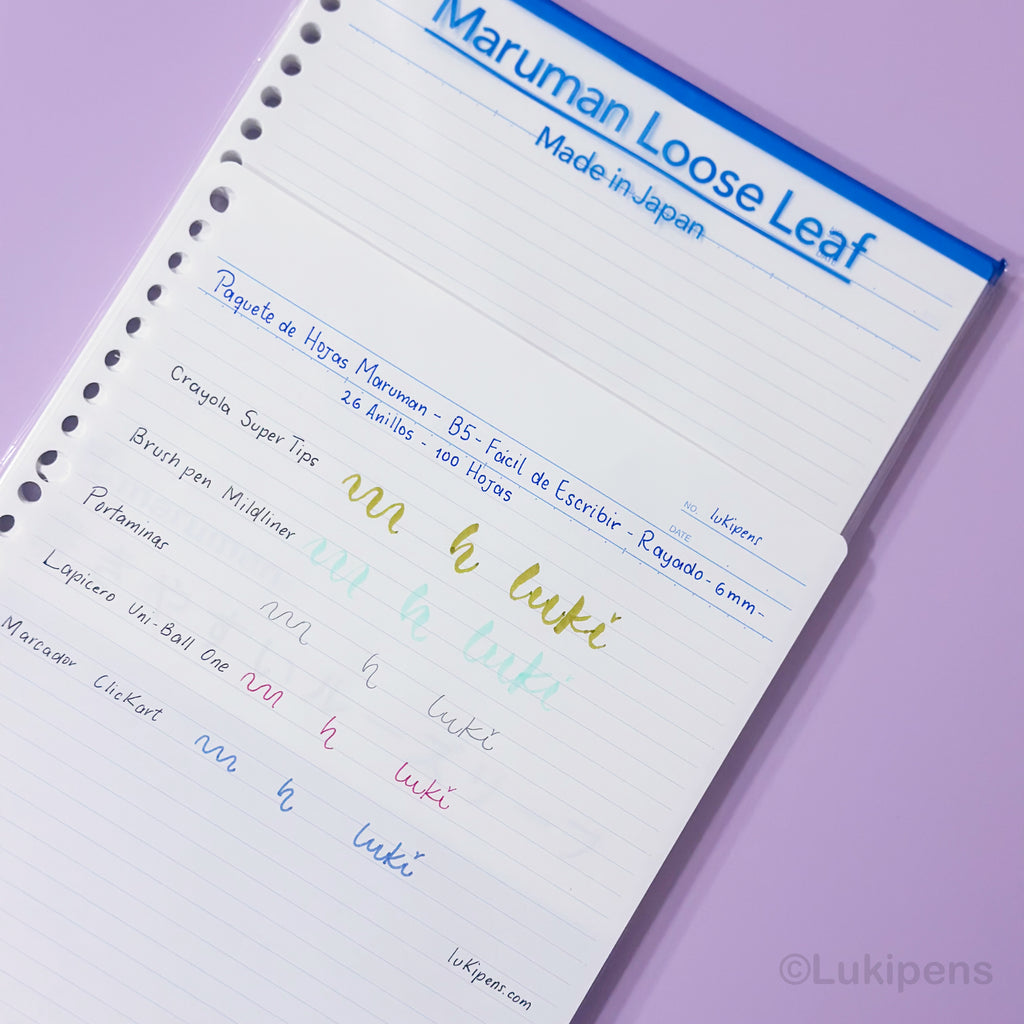 Maruman Loose Leaf
Made in Japan
NO. luKipens
DATE
Paquete de Hojas Maruman - B5 - Fácil de Escribir - Rayado - 6mm -
26 Anillos - 100 Hojas
Crayola Super Tips h luki
Brush pen Mildliner h luki
Portaminas h luki
Lapicero Uni-Ball One h luki
Marcador ClicKart h luki
luKipens.com
©Lukipens